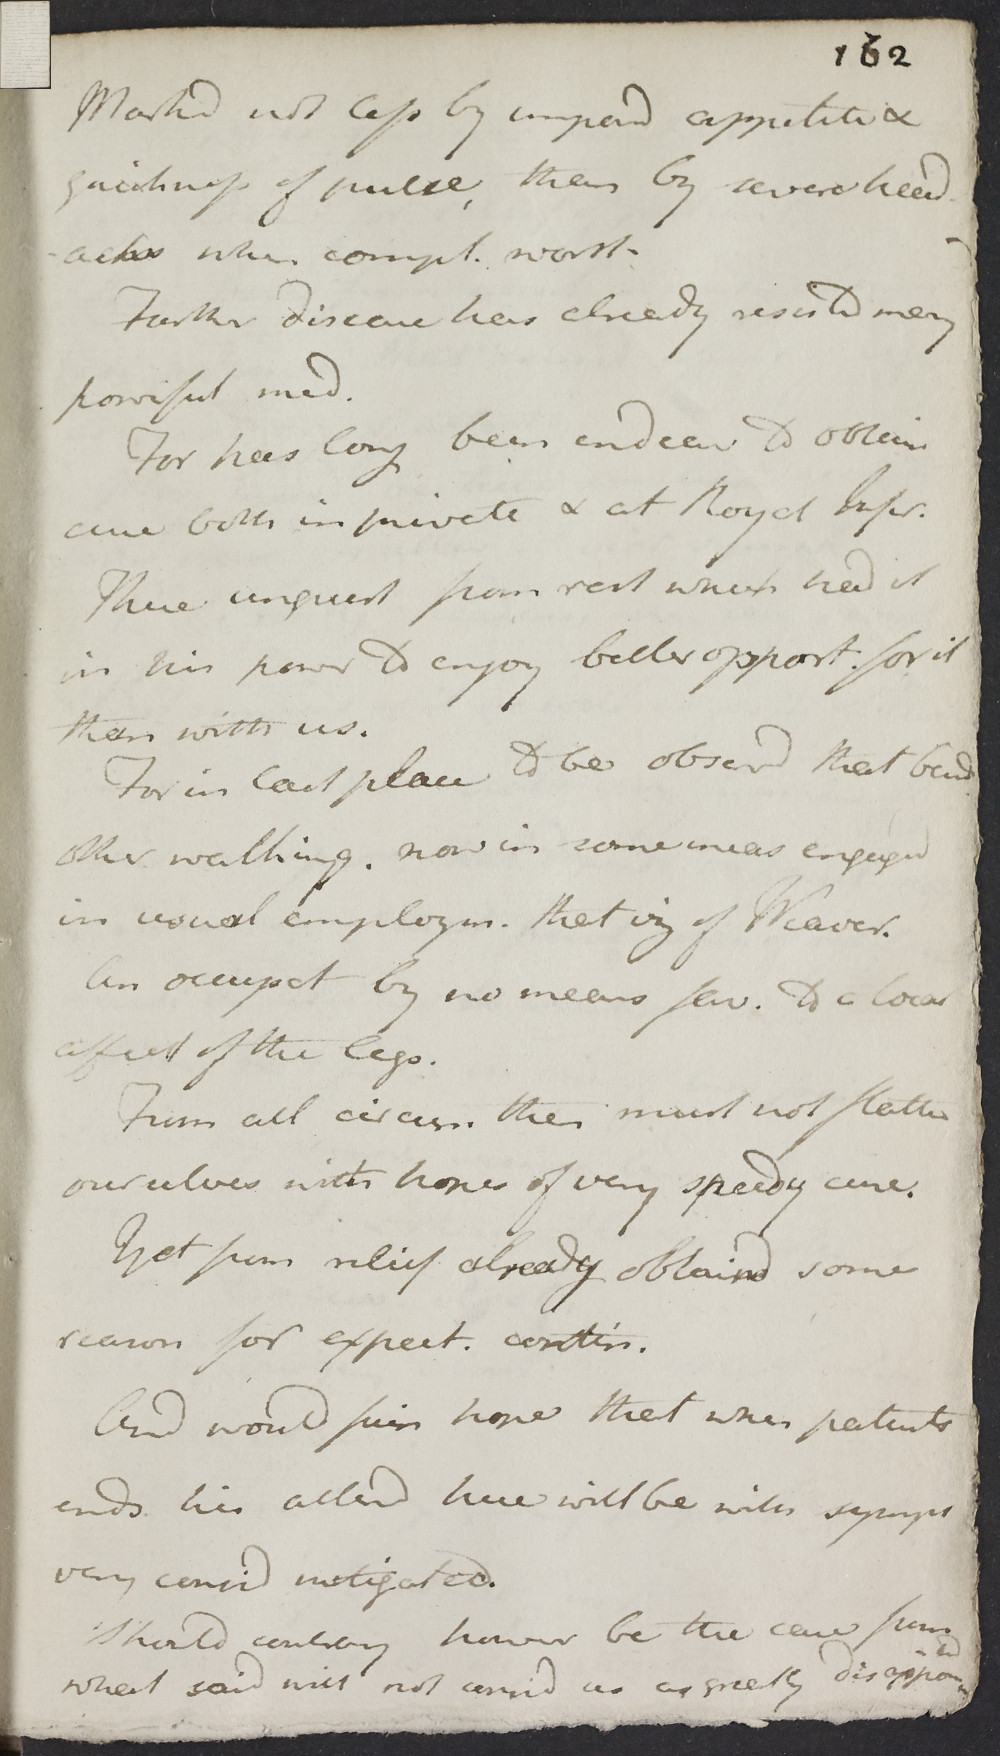 162
Markd not less by impaird appetite &
quickness of pulse, than by severe head-
-achs when compl. worst.
Further disease has already resistd many
powerful med.
For has long been endeav to obtain
cure both in private & at Royal Infir.
There unquest from rest when had it
in his power to enjoy better opport. for it
than with us.
For in last place to be observd that besid
other walking. now in some meas engaged
in usual employm. that viz of Weaver.
An occupat by no means fav. to a local
affect of the legs.
From all circum. then must not flatter
ourselves with hopes of very speedy cure.
Yet from relief already obtaind some
reason for expect. contin.
And would fain hope that when patients
ends his attend here will be with sympt
very consid mitigated.
Should contrary howevr be the case from
what said will not consid us as greatly disappointed